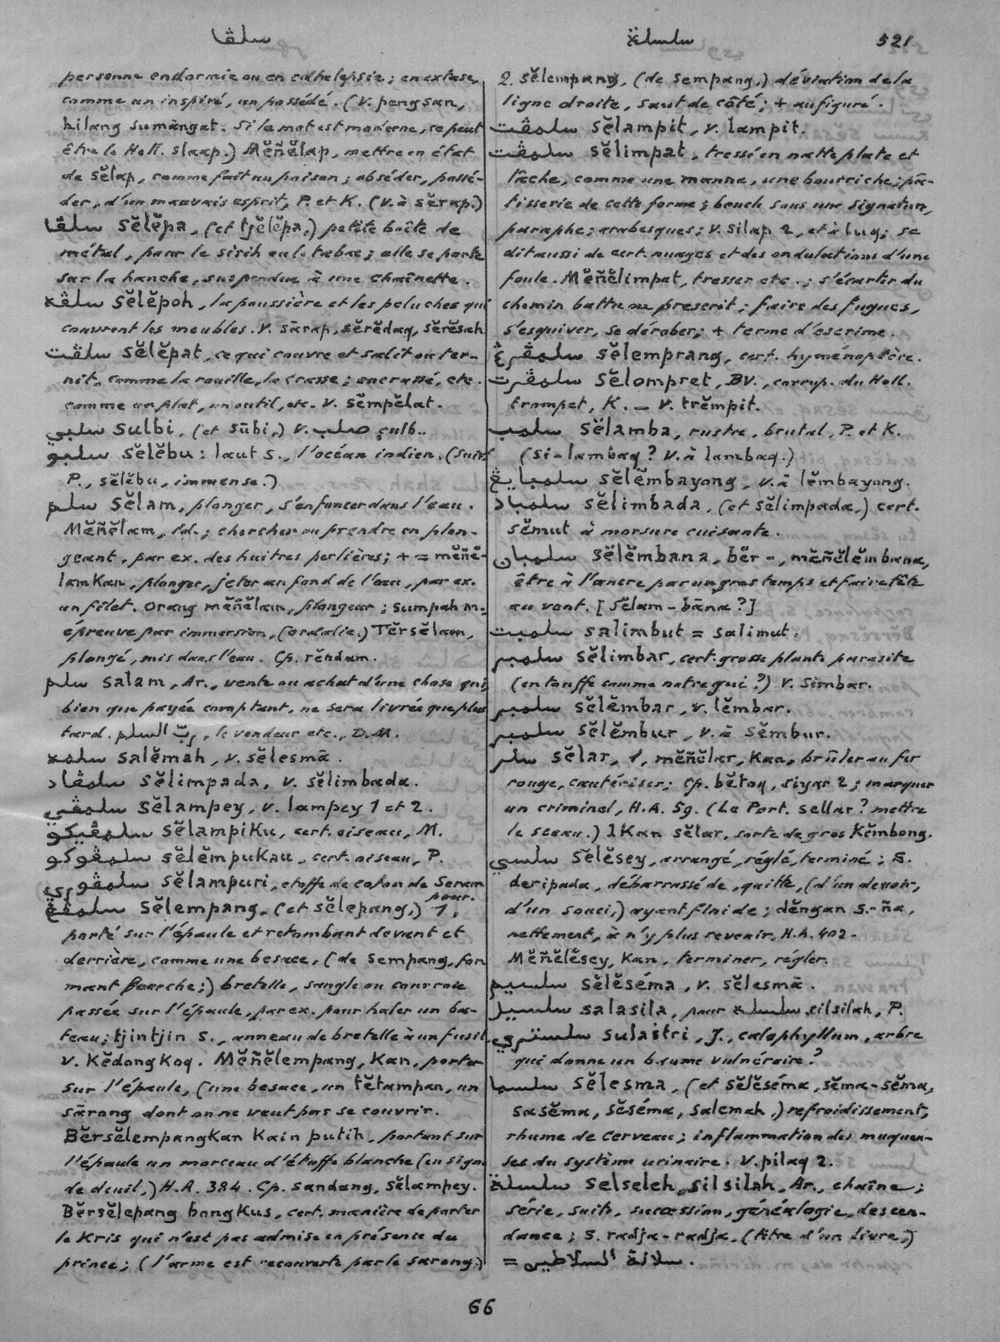 سلڤا
سلسلة
521
personne endormie ou en cathalepsie; en extase,
comme un inspiré, un possédé. (V. pengsan,
hilang sumàngat. Si le mot est moderne, ce peut
être le Holl. slaap.) Měñělap, mettre en état
de sělap, comme fait un poison; obséder, possé-
der, d'un mauvais esprit, P. et K. (v. à sěrap.)
سلڤا sělěpa, (et tjělěpa,) petite boîte de
métal, pour le sirih ou le tabac; elle se porte
sur la hanche, suspendue à une chaînette.
سلڤه sělěpoh, la poussière et les peluches qui
couvrent les meubles. V. sārap, sěrědaq, sěrěsah
سلڤت sělěpat, ce qui couvre et salit ou ter-
nit, comme la rouille, la crasse; encrassé, etc.
comme un plat, un outil, etc. V. sěmpělat.
سلبي sulbi, (et sūbi,) v. صلب çulb.
سلبو sělěbu: laut s., l'océan indien. (Suiv.
P., sělěbu, immense.)
سلم sělam, plonger, s'enfoncer dans l'eau.
Měñělam, id.; chercher ou prendre en plon-
geant, par ex. des huitres perlières; + = měñě-
lamkan, plonger, jeter au fond de l'eau, par ex.
un filet. Orang měñělam, plongeur; sumpah m.
épreuve par immersion, (ordalie.) Těrsělam,
plongé, mis dans l'eau. Cp. rěndam.
سلم salam, Ar., vente ou achat d'une chose qui,
bien que payée comptant, ne sera livrée que plus
tard. ربّ السلم, le vendeur etc., D.M.
سلمه salěmah, v. sělesmā.
سلمڤاد sělimpada, v. sělimbada.
سلمڤي sělampey, v. lampey 1 et 2.
سلمڤيكو sělampiku, cert. oiseau, M.
سلمڤوكو sělěmpukau, cert. oiseau, P.
سلمڤوري sělampuri, etoffe de coton de Seram
pour.
سلمڤڠ sělempang, (et sělepang,) 1,
porté sur l'épaule et retombant devant et
derrière, comme une besace, (de sempang, for
mant fourche;) bretelle, sangle ou courroie
passée sur l'épaule, par ex. pour haler un ba-
teau; tjintjin s., anneau de bretelle à un fusil
V. kědongkoq. Měñělempang, kan, porter
sur l'épaule, (une besace, un tětampan, un
sārong dont on ne veut pas se couvrir.
Běrsělempangkan kain putih, portant sur
l'épaule un morceau d'étoffe blanche (en signe
de deuil,) H.A. 384. Cp. sandang, sělampey.
Běrsělepang bangkus, cert. manière de porter
le kris qui n'est pas admise en présence du
prince; (l'arme est recouverte par le sarong.)
2. sělempang, (de sempang,) déviation de la
ligne droite, saut de côté; + au figuré.
سلمڤت sělampit, v. lampit.
سلمڤت sělimpat, tressé en natte plate et
lâche, comme une manne, une bourriche; pâ-
tisserie de cette forme; boucle sous une signature,
paraphe; arabesques; v. silap 2, et à luq; se
dit aussi de cert. nuages et des ondulations d'une
foule. Měñělimpat, tresser etc.; s'écarter du
chemin battu ou prescrit; faire des fugues,
s'esquiver, se dérober; + terme d'escrime.
سلمڤرڠ sělemprang, cert. hyménoptère.
سلمڤرت sělompret, BV., corrup. du Holl.
trompet, K. — V. trěmpit.
سلمب sělamba, rustre, brutal, P. et K.
(si-lambaq? v. à lambaq.)
سلمبايڠ sělěmbayong, v. à lěmbayong.
سلمباد sělimbada, (et sělimpada,) cert.
sěmut à morsure cuisante.
سلمبان sělěmbana, běr-, měñělěmbana,
être à l'ancre par un gros temps et faire tête
au vent. [sělam-bāna?]
سلمبت salimbut = salimut.
سلمبر sělimbar, cert. grosse plante parasite
(en touffe comme notre gui?) v. simbar.
سلمبر sělěmbar, v. lěmbar.
سلمبر sělěmbur, v. à sěmbur.
سلر sělar, 1, měñělar, kan, brûler au fer
rouge, cautériser; cp. bětoq, siyar 2; marquer
un criminel, H.A. Sg. (Le Port. sellar? mettre
le sceau.) Ikan sělar, sorte de gros kěmbong.
سلسي sělěsey, arrangé, réglé, terminé; s.
deripada, débarrassé de, quitte, (d'un devoir,
d'un souci,) ayant fini de; děngan s.-ña,
nettement, à n'y plus revenir, H.A. 402.
Měñělěsey, kan, terminer, régler.
سلسيم sělěséma, v. sělesmā.
سلسيل salasila, pour سلسله silsilah, P.
سلستري sulastri, J., calophyllum, arbre
qui donne un baume vulnéraire?
سلسما sělesma, (et sělěséma, sěma-sěma,
sasěma, sěséma, salemah,) refroidissement,
rhume de cerveau; inflammation des muqueu-
ses du système urinaire. V. pilaq 2.
سلسلة selseleh, silsilah, Ar., chaîne;
série, suite, succession, généalogie, descen-
dance; s. radja-radja, (titre d'un livre,)
= سلالة السلاطين.
66